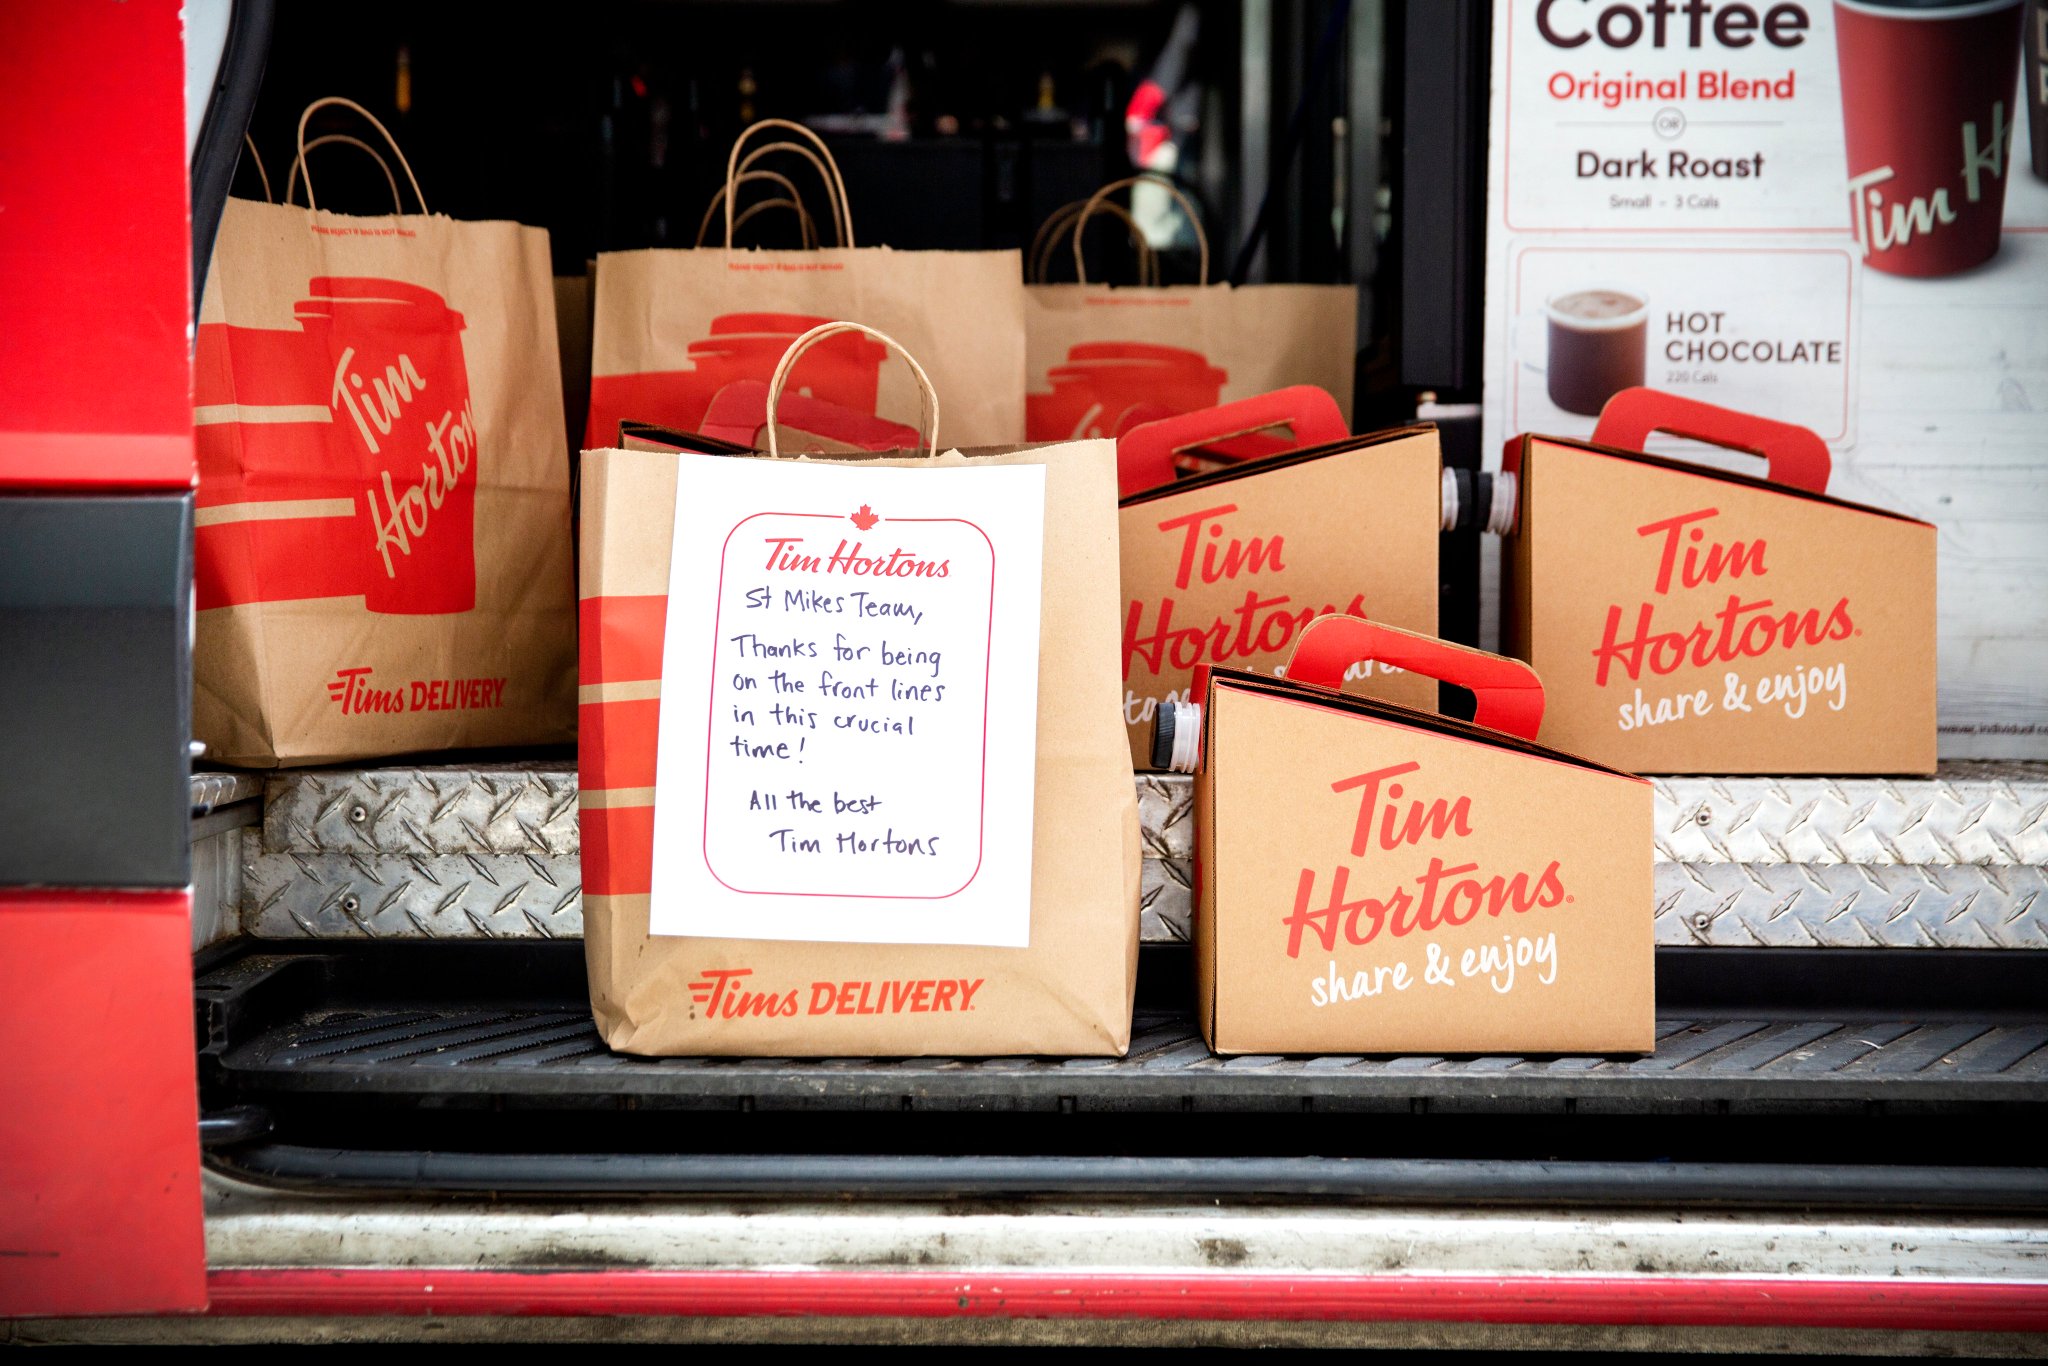 Coffee
Original Blend
OR
Dark Roast
Small - 3 Cals
Tim H
HOT
CHOCOLATE
220 Cals
PLEASE REJECT IF BAG IS NOT SEALED
Tim
Horton
Tims DELIVERY
PLEASE REJECT IF BAG IS NOT SEALED
Tim Hortons
St Mikes Team,
Thanks for being
on the front lines
in this crucial
time!
All the best
Tim Hortons
Tims DELIVERY
Tim
Hortons
Tim
Hortons
share & enjoy
Tim
Hortons®
share & enjoy